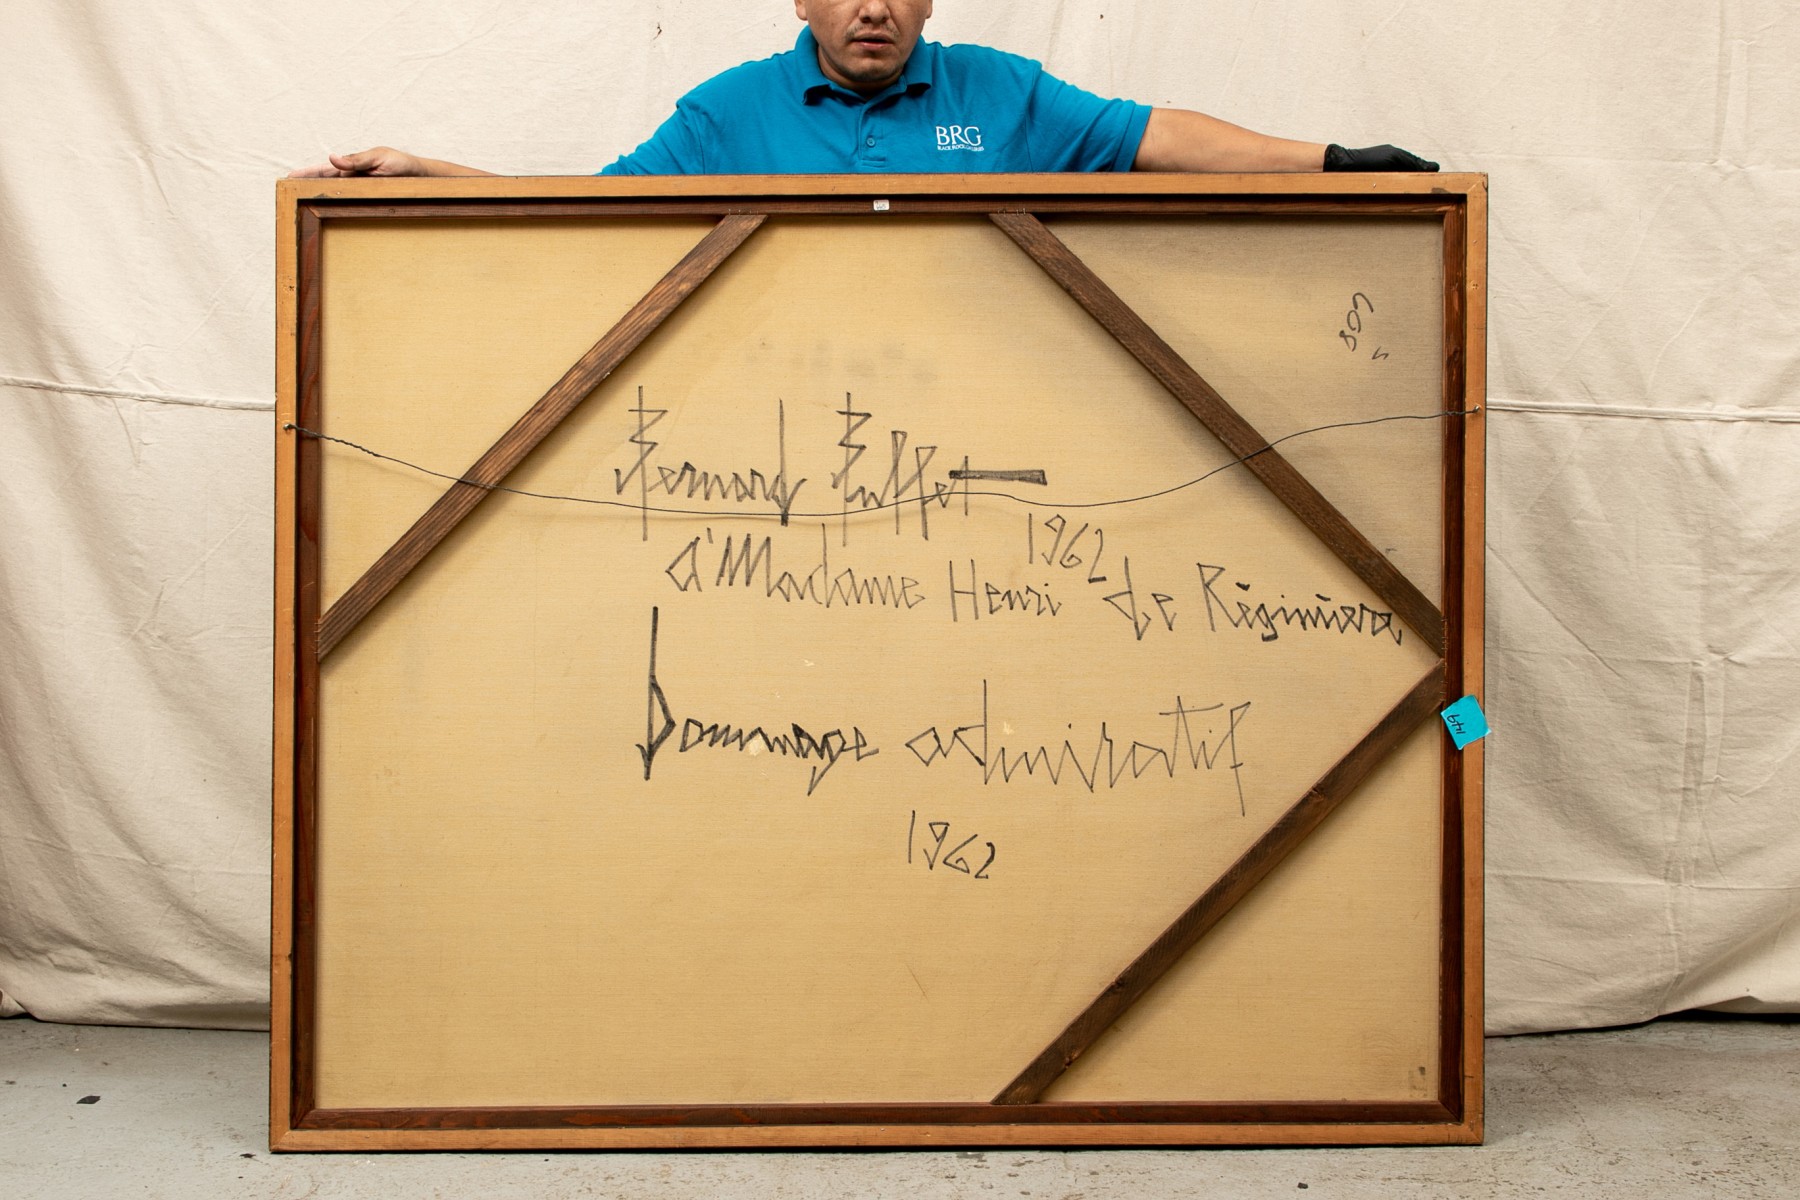 BRG
BLACK ROCK GALLERIES
Bernard Buffet
1962
à Madame Henri de Régimiera
Dommage admiratif
1962
149